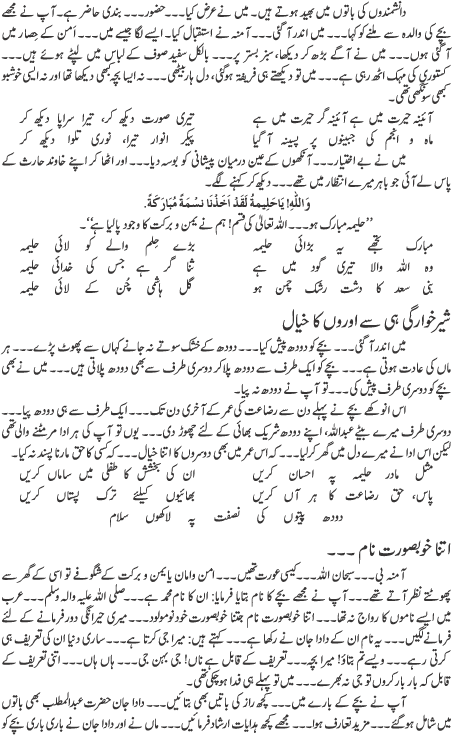 دانشمندوں کی باتوں میں بھید ہوتے ہیں۔ میں نے عرض کیا۔۔۔ حضور۔۔۔ بندی حاضر ہے۔ آپ نے مجھے
بچے کی والدہ سے ملنے کو کہا۔۔۔ میں اندر آ گئی۔۔۔ آمنہ نے استقبال کیا۔ ایسے لگا جیسے میں۔۔۔ اَمن کے حصار میں
آ گئی ہوں۔۔۔ میں نے آگے بڑھ کر دیکھا، سبز بستر پر۔۔۔ بالکل سفید صوف کے لباس میں لپٹے ہوئے ہیں۔۔۔
کستوری کی مہک اٹھ رہی ہے۔۔۔ میں تو دیکھتے ہی فریفتہ ہو گئی، دل ہار بیٹھی۔۔۔ نہ ایسا بچہ کبھی دیکھا تھا اور نہ ایسی خوشبو
کبھی سونگھی تھی۔
آئینہ حیرت میں ہے آئینہ گر حیرت میں ہے تیری صورت دیکھ کر، تیرا سراپا دیکھ کر
ماہ و انجم کی جبینوں پر پسینہ آ گیا پیکر انوار تیرا، نوری تلوا دیکھ کر
میں نے بے اختیار۔۔۔ آنکھوں کے عین درمیان پیشانی کو بوسہ دیا۔۔۔ اور اٹھا کر اپنے خاوند حارث کے
پاس لے آئی جو باہر میرے انتظار میں تھے۔۔۔ دیکھ کر کہنے لگے۔
وَاللّٰہِ! یَاحَلِیمَۃُ لَقَدْ اَخَذْنَا نِسْمَۃً مُّبَارَکَۃً۔
‘‘حلیمہ مبارک ہو۔۔۔ اللہ تعالیٰ کی قسم! ہم نے یمن و برکت کا وجود پا لیا ہے’’۔
مبارک تجھے یہ بڑائی حلیمہ بڑے حِلم والے کو لائی حلیمہ
وہ اللہ والا تیری گود میں ہے ثنا گر ہے جس کی خدائی حلیمہ
بنی سعد کا دشت رشک چمن ہو گل ہاشمی چُن کے لائی حلیمہ
شیر خوارگی ہی سے اوروں کا خیال
میں اندر آ گئی۔۔۔ بچے کو دودھ پیش کیا۔۔۔ دودھ کے خشک سوتے نہ جانے کہاں سے پھوٹ پڑے۔۔۔ ہر
ماں کی عادت ہوتی ہے۔۔۔ بچے کو ایک طرف سے دودھ پلا کر دوسری طرف سے بھی دودھ پلاتی ہیں۔۔۔ میں نے بھی
بچے کو دوسری طرف پیش کی۔۔۔ تو آپ نے دودھ نہ پیا۔
اس انوکھے بچے نے پہلے دن سے رضاعت کی عمر کے آخری دن تک۔۔۔ ایک طرف سے ہی دودھ پیا۔۔۔
دوسری طرف میرے بیٹے عبداللہ، اپنے دودھ شریک بھائی کے لئے چھوڑ دی۔۔۔ یوں تو آپ کی ہر ادا مر مٹنے والی تھی
لیکن اس ادا نے میرے دل میں گھر کر لیا۔۔۔ کہ اس عمر میں بھی دوسروں کا اتنا خیال۔۔۔ کہ کسی کا حق مارنا پسند نہ کیا۔
مثل مادر حلیمہ پہ احسان کریں ان کی بخشش کا طفلی میں ساماں کریں
پاس، حق رضاعت کا ہر آں کریں بھائیوں کیلئے ترک پستاں کریں
دودھ پیتوں کی نصفت پہ لاکھوں سلام
اتنا خوبصورت نام ۔۔۔
آمنہ بی۔۔۔ سبحان اللہ۔۔۔ کیسی عورت تھیں۔۔۔ امن و امان یا یمن و برکت کے شگوفے تو اسی کے گھر سے
پھوٹتے نظر آتے تھے۔۔۔ آپ نے مجھے بچے کا نام بتایا فرمایا: ان کا نام محمد ہے۔۔۔ صلی اللہ علیہ والہ وسلم۔۔۔ عرب
میں ایسے ناموں کا رواج نہ تھا۔۔۔ اتنا خوبصورت نام جتنا خوبصورت خود نومولود۔۔۔ میری حیرانگی دور فرمانے کے لئے
فرمانے لگیں۔۔۔ یہ نام ان کے دادا جان نے رکھا ہے۔۔۔ کہتے ہیں: میرا جی کرتا ہے۔۔۔ ساری دنیا ان کی تعریف ہی
کرتی رہے۔۔۔ ویسے تم بتاؤ! میرا بچہ۔۔۔ تعریف کے قابل ہے ناں! جی بہن جی۔۔۔ ہاں ہاں۔۔۔ اتنی تعریف کے
قابل کہ بار بار کروں تو جی نہ بھرے۔۔۔ میں تو پہلے ہی فدا ہو چکی تھی۔
آپ نے بچے کے بارے میں۔۔۔ کچھ راز کی باتیں بھی بتائیں۔۔۔ دادا جان حضرت عبدالمطلب بھی باتوں
میں شامل ہو گئے۔۔۔ مزید تعارف ہوا۔۔۔ مجھے کچھ ہدایات ارشاد فرمائیں۔۔۔ ماں نے اور دادا جان نے باری باری بچے کو